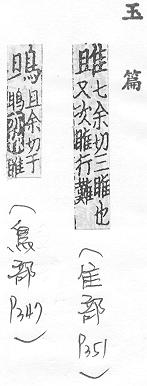 玉篇
雎七余切三雎也
且又次雎行難
（隹部
P351）
鴡且余切子
（鳥部
P347）